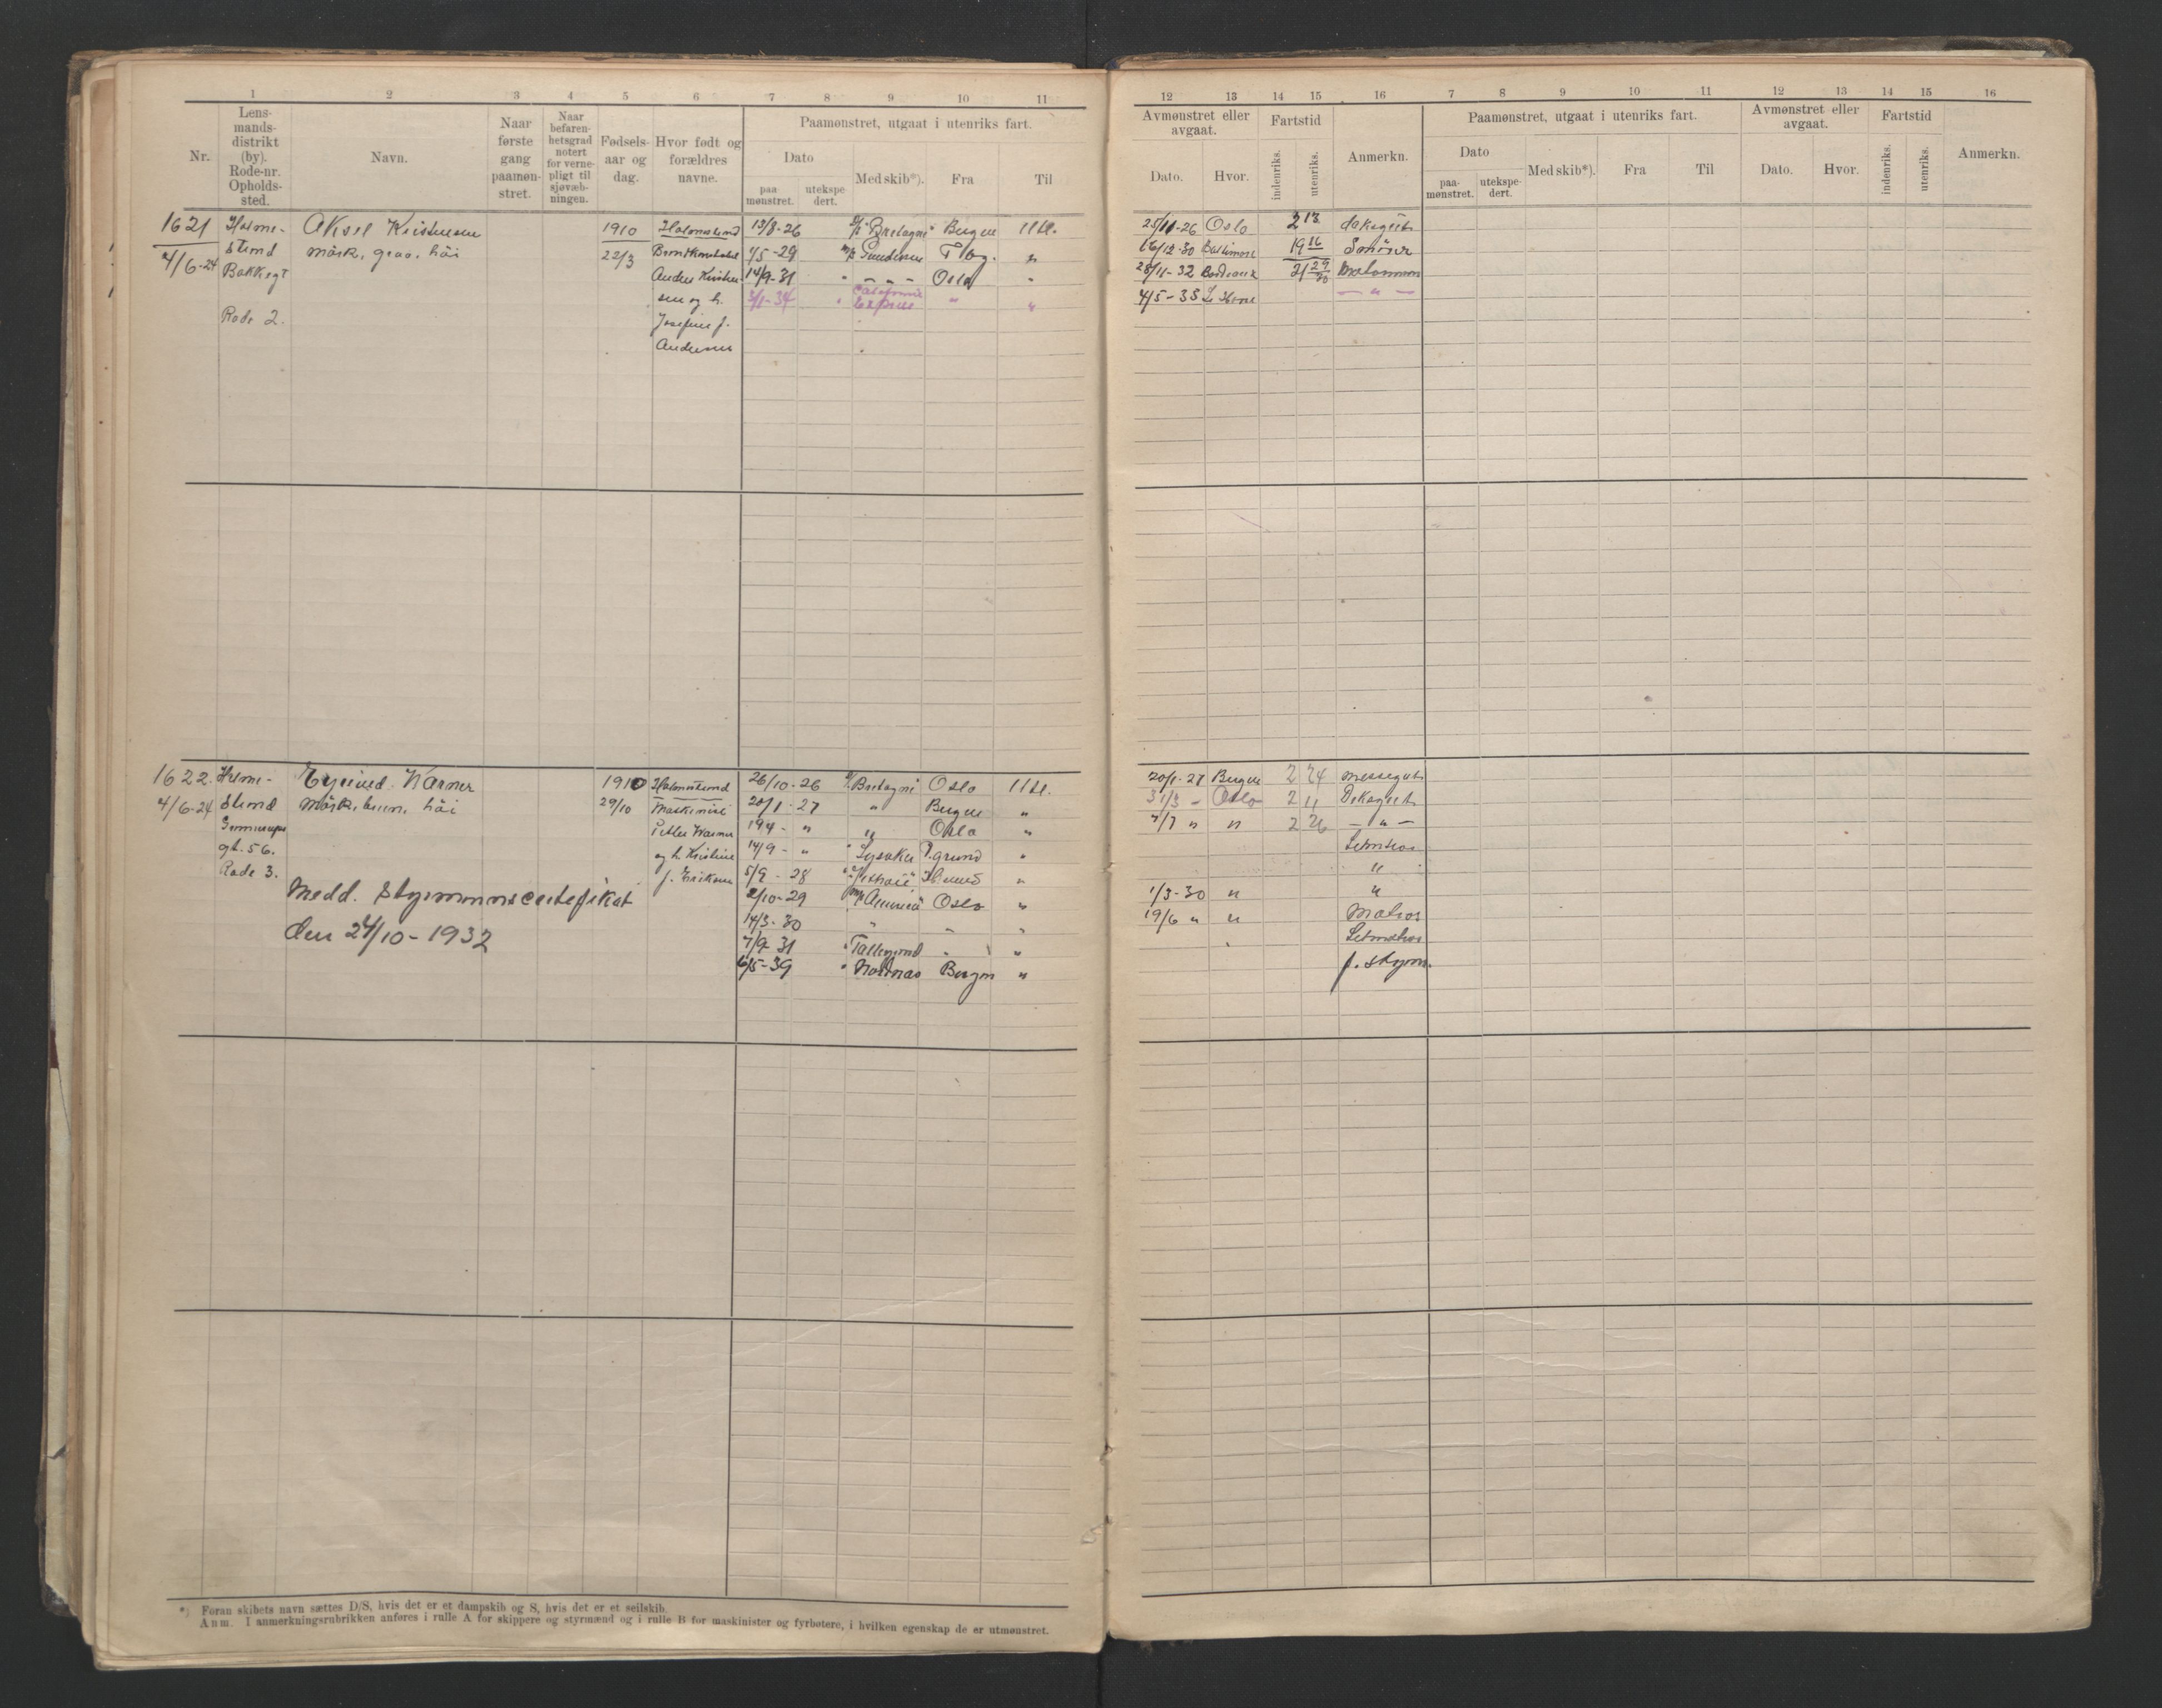 1 2 3 4 5 6 7 8 9 10 11
Nr.
Lens-
mands-
distrikt
(by).
Rode-nr.
Opholds-
sted.
Navn.
Naar
første
gang
paamøn-
stret.
Naar
befaren-
hetsgrad
notert
for verne-
pligt til
sjøvæb-
ningen.
Fødsels-
aar og
dag.
Hvor født og
forældres
navne.
Paamønstret, utgaat i utenriks fart.
Dato
paa
mønstret.
utekspe
dert.
Med skib*).
Fra
Til
12 13 14 15 16 7 8 9 10 11 12 13 14 15 16
Avmønstret eller
avgaat.
Dato.
Hvor.
Fartstid
indenriks.
utenriks.
Anmerkn.
Paamønstret, utgaat i utenriks fart.
Dato
paa-
mønstret.
utekspe-
dert.
Med skib*).
Fra
Til
Avmønstret eller
avgaat.
Dato.
Hvor.
Fartstid
indenriks.
utenriks.
Anmerkn.
1621
4/6-24
Holme-
strand
Bakkegt
Rode 2.
Aksel Kristensen
mörk, graa, höi
1910
22/3
Holmestrand
Anders Kristen
sen og h.
Josefine f.
Andersen
13/8-26 "Bretagne" Bergen Utl. 25/11-26 Oslo 2 13 daksgutt
1/5-29 Tbg. " 16/12-30 Baltimore 19 16
14/9-31 " " " Oslo " 28/11-32 Bordeaux 21 29/30
3/1-34 " California Express " " 4/5-35 Le Havre — " —
1622.
4/6-24
Holme-
strand
gt. 56.
Rode 3.
Eyvind Warner
Mörk, brun, höi
Medd. styrmannscertefikat
den 24/10-1932
1910
29/10
Holmestrand
Maskinist
Petter Warner
og h. Kristine
f. Eriksen
26/10-26 Bretagne Oslo Utl. 20/1-27 Bergen 2 24 messegutt
20/1-27 " Bergen " 31/3 - Oslo 2 11 Deksgutt
19/4 - " " Oslo " 7/7 " " 2 26 — " —
14/9 - " " Lysaker P.grund " Letmatros
5/9 - 28 H.strand " "
2/10-29 America Oslo " 1/3-30 " "
14/3-30 " " " 19/6 " " Matros
7/9-31 " " " Letmatros
6/5-39 " Nordnes Bergen " f. styrm.
*) Foran skibets navn sættes D/S, hvis det er et dampskib og S, hvis det er et seilskib.
Anm. I anmerkningsrubrikken anføres i rulle A for skippere og styrmænd og i rulle B for maskinister og fyrbøtere, i hvilken egenskap de er utmønstret.